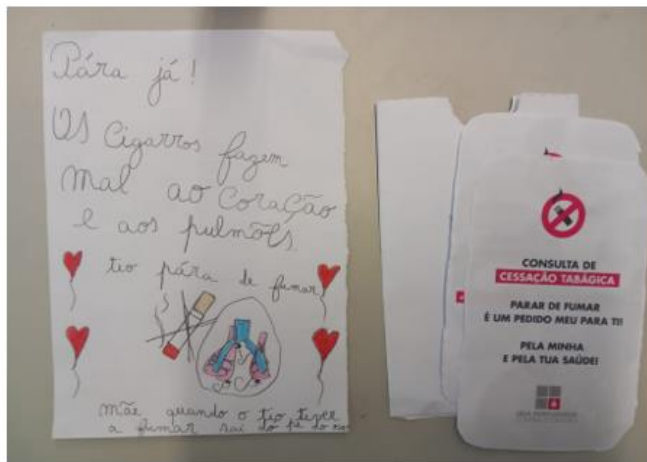 Pára já!
Os Cigarros fazem
mal ao Coração
e aos pulmões
tio pára de fumar
mãe quando o tio
a fumar sai do pé do
CONSULTA DE
CESSAÇÃO TABÁGICA
PARAR DE FUMAR
É UM PEDIDO MEU PARA TI!
PELA MINHA
E PELA TUA SAÚDE!